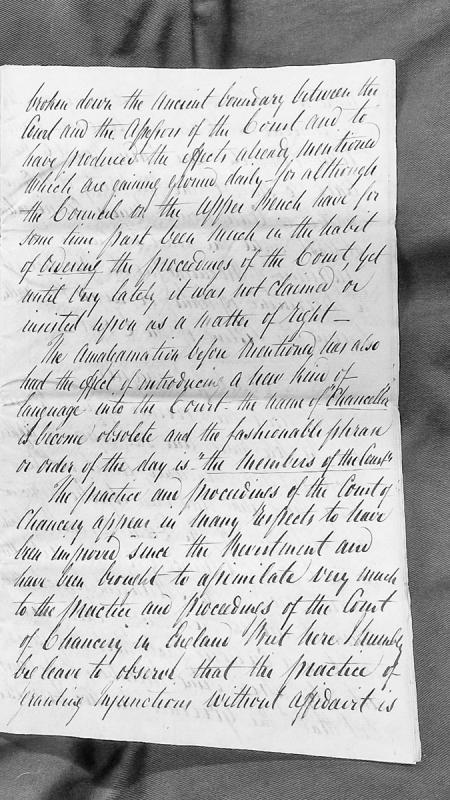 broken down the ancient boundary between the
Court and the Assessors of the Court and to
have produced the effects already mentioned
which are gaining ground daily for although
the Council or the Upper Bench have for
some time past been much in the habit
of ordering the proceedings of the Court, yet
until very lately it was not claimed or
insisted upon as a matter of right –
The Amalgamation before mentioned has also
had the effect of introducing a new kind of
language into the Court – the name of "Chancellor"
is become obsolete and the fashionable phrase
or order of the day is "the Members of the Court"
The practice and proceedings of the Court of
Chancery appear in many respects to have
been improved since the Revestment and
have been brought to assimilate very much
to the practice and proceedings of the Court
of Chancery in England But here I humbly
beg leave to observe that the practice of
granting injunctions without affidavit is